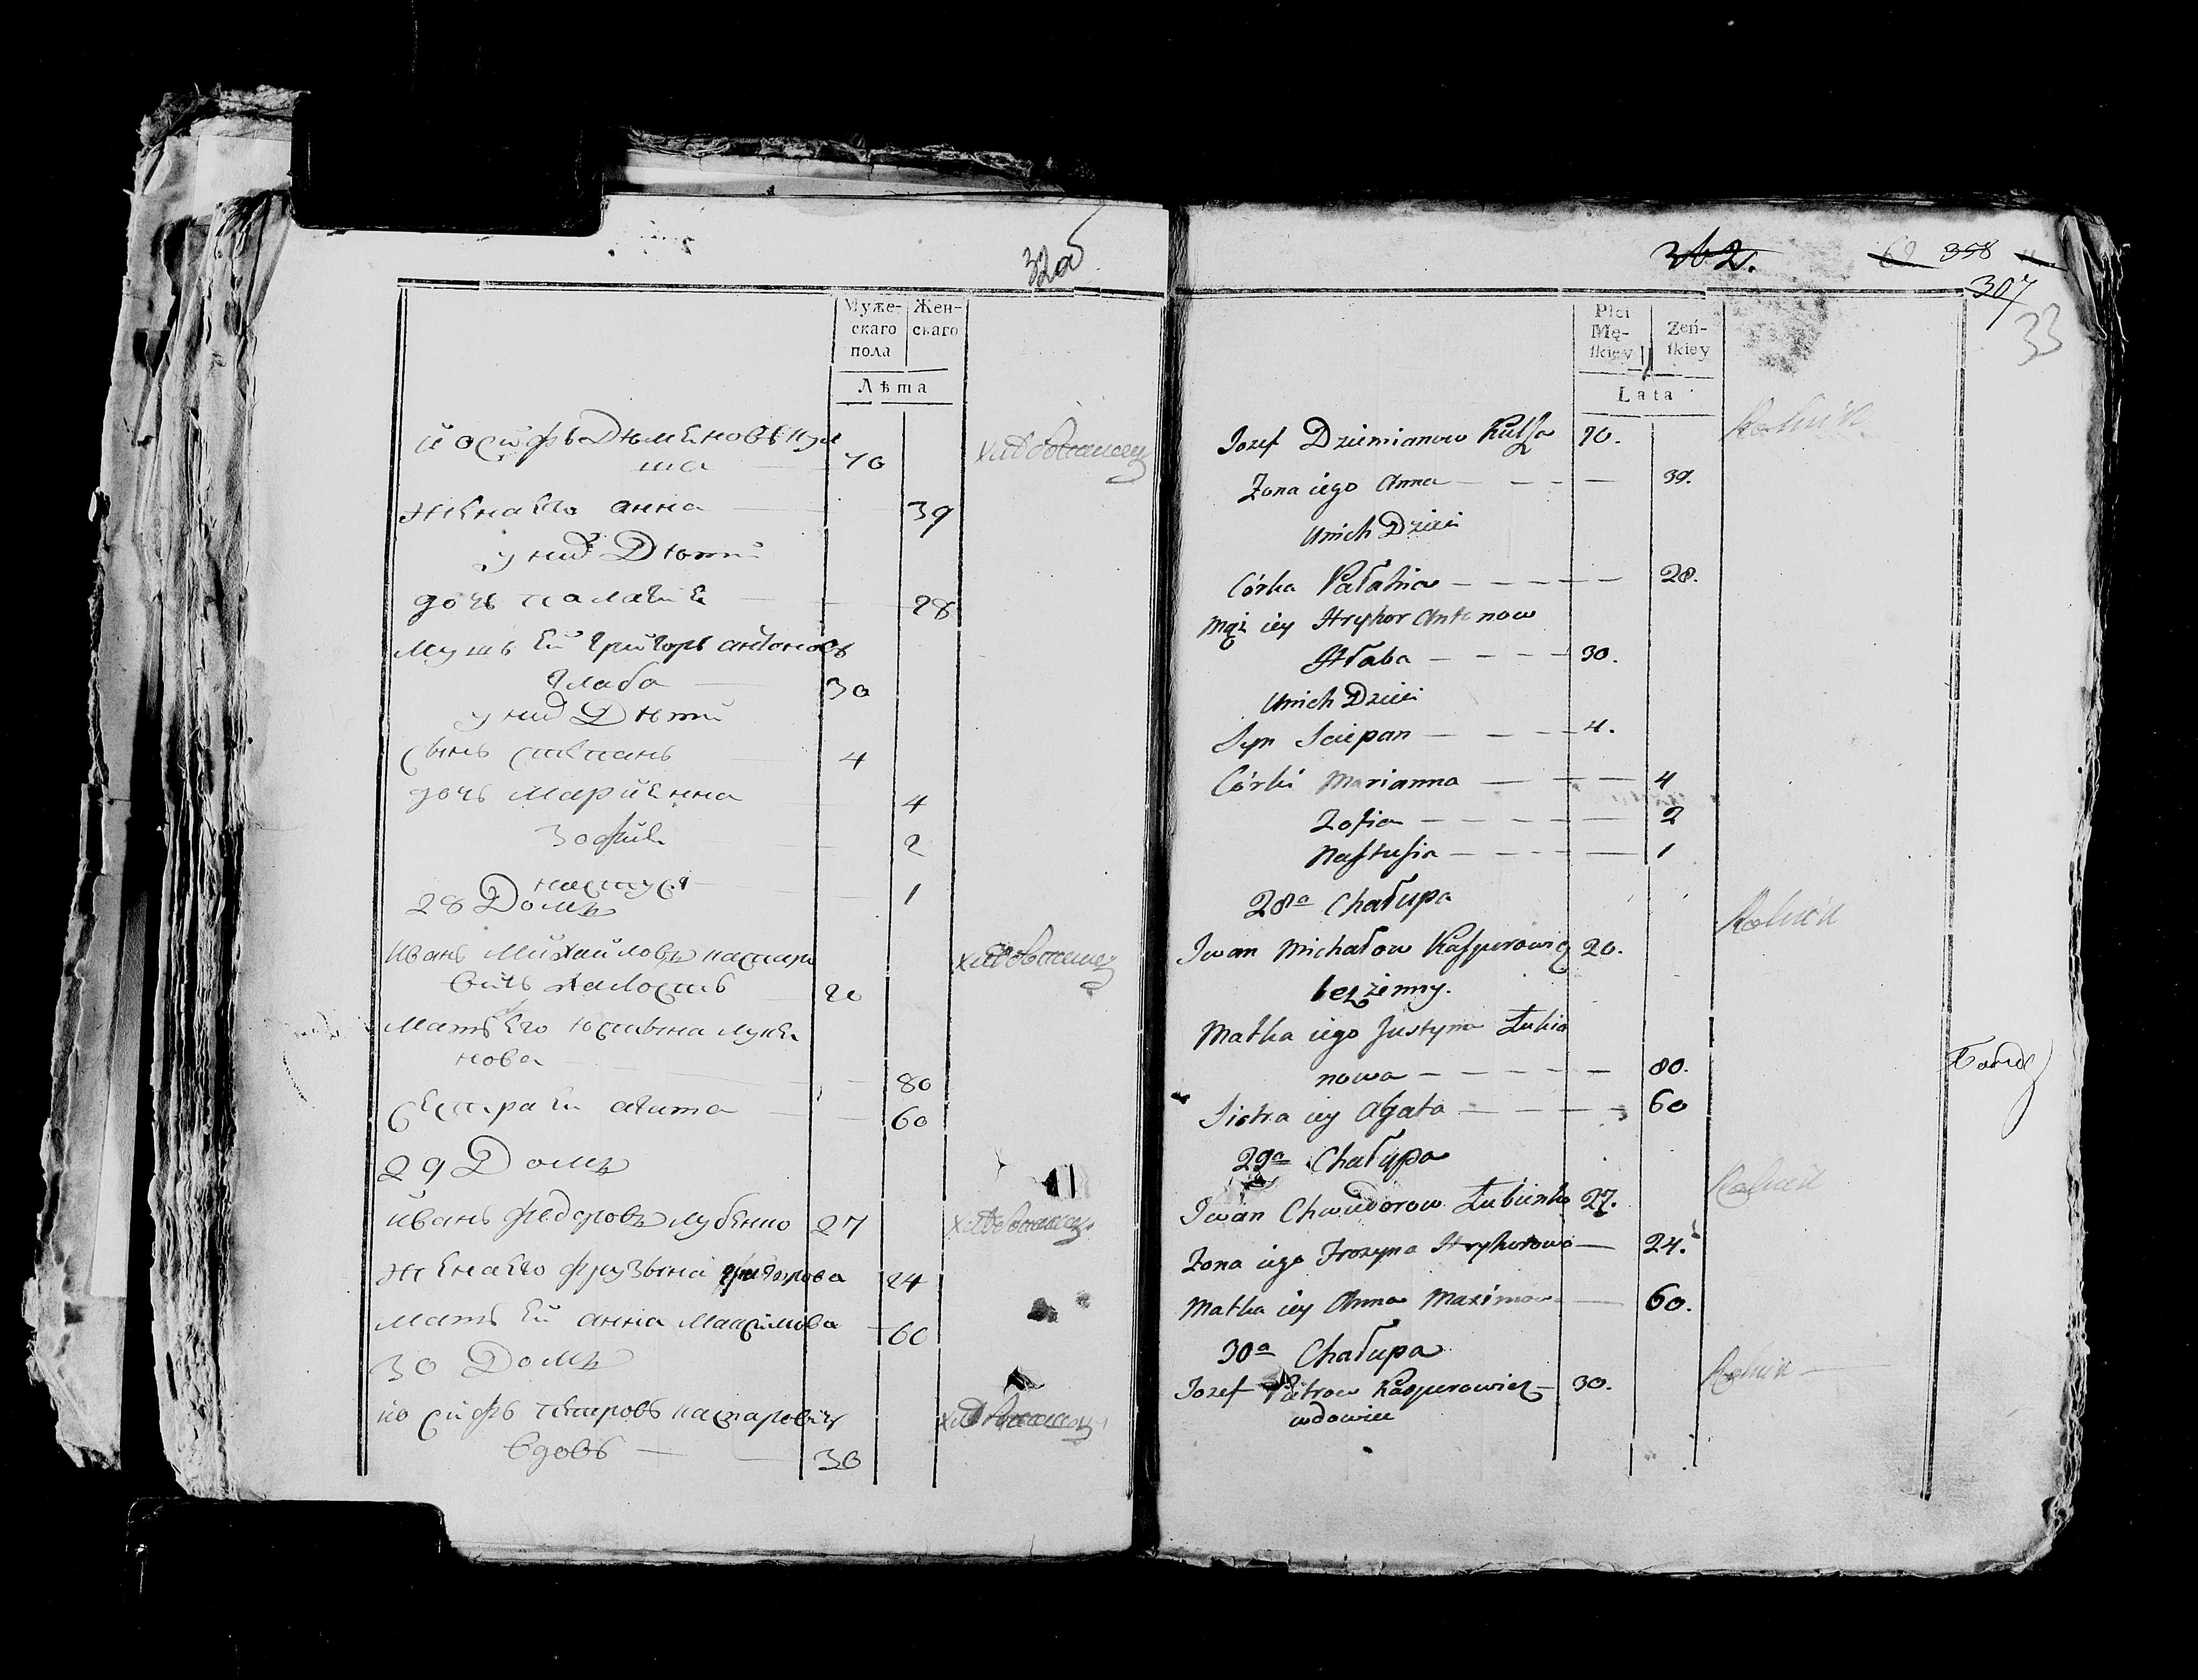 32об
Муже-
скаго
пола
Жен-
скаго
Лѣта
Йосифъ Дѣменовъ Кул
ша 70
хлѣбопашец
жена его анна 39
у них Дѣти
дочь палагия 28
Мужъ ей Григоръ антоновъ
Глаба 30
у них Дѣти
сынъ степанъ 4
дочь Мариянна 4
Зофия 2
настуся 1
28 Домъ
Иванъ Михайловъ каспаро
вичь холостъ 20
хлѣбопашец
Мать его юстына лукя
нова 80
сестра ей агата 60
29 Домъ
Иванъ федоровъ лубенко 27
хлѣбопашец
жена его фрузына григорова 24
Мать ей анна Максимова 60
30 Домъ
йосифъ петровъ каспарович
хлѣбопашец
вдовъ 30
362.
62 358
307
33
Płci
Mę-
ſkiey
Zeń-
ſkiey
Lata
Jozef Dziemianow Kulſza 70. Rolnik
Zona iego Anna 39.
Unich Dzieci
Córka Pałahia 28.
Mąż iey Hryhor Antonow
Hłaba 30.
Unich Dzieci
Syn Sciepan 4.
Córki Marianna 4
Zofia 2
Naſtuſia 1
28a Chałupa
Rolnik
Iwan Michałow Kaſperowicz 20.
bezżenny.
Matka iego Justyna Łukia
nowa 80.
Siostra iey Agata 60
29a Chałupa
Rolnik
Iwan Chwiedorow Łubienko 27.
Zona iego Frozyna Hryhorowa 24.
Matka iey Anna Maximowa 60.
30a Chałupa
Jozef Pietrow Kasperowicz 30. Rolnik
wdowiec